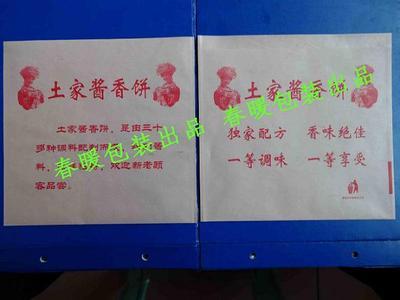 土家酱香饼
土家酱香饼，是由三十
多种调料配制而
料，
欢迎新老顾
客品尝。
土家酱香饼
独家配方 香味绝佳
一等调味 一等享受
春暖包装出品
春暖包装出品